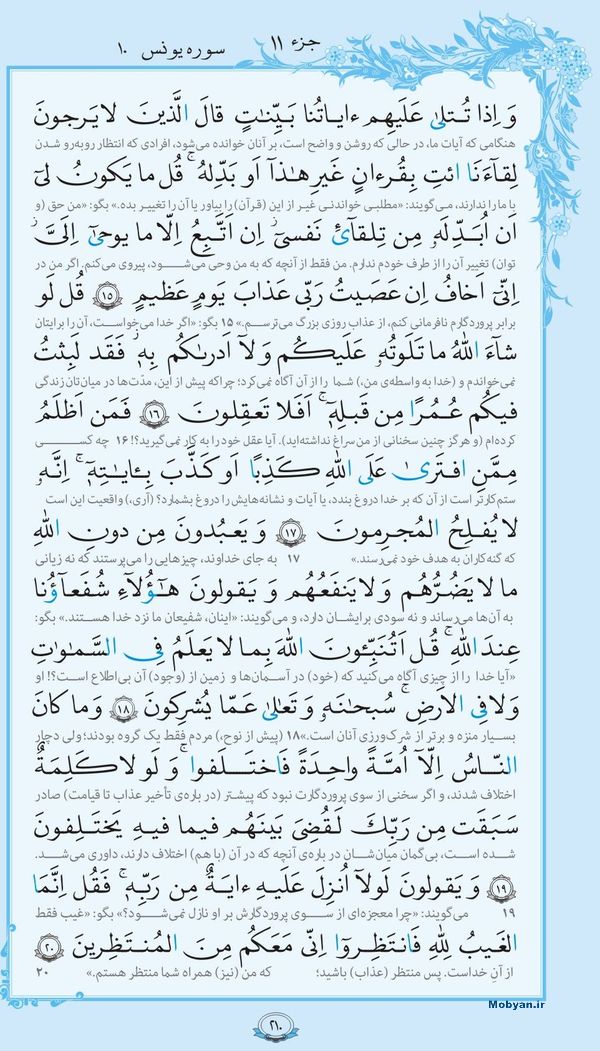 جزء ۱۱
سوره یونس ۱۰
وَ اِذا تُتلىٰ عَلَیهِم ءایاتُنا بَیِّنٰتٍ قالَ الَّذینَ لا یَرجونَ
هنگامی که آیات ما، در حالی که روشن و واضح است، بر آنان خوانده می‌شود، افرادی که انتظار روبه‌رو شدن
لِقآءَنَا ائتِ بِقُرءانٍ غَیرِ هٰذآ اَو بَدِّلهُ ۚ قُل ما یَکونُ لیٓ
با ما را ندارند، می‌گویند: «مطلبی خواندنی غیر از این (قرآن) را بیاور یا آن را تغییر بده.» بگو: «من حق (و
اَن اُبَدِّلَهٗ مِن تِلقآئِ نَفسیٓ ۖ اِن اَتَّبِعُ اِلّا ما یوحىٰٓ اِلَیَّ ۖ
توان) تغییر آن را از طرف خودم ندارم. من فقط از آنچه که به من وحی می‌شـود، پیروی می‌کنم. اگر من در
اِنّیٓ اَخافُ اِن عَصَیتُ رَبّی عَذابَ یَومٍ عَظیمٍ ۱۵ قُل لَو
برابر پروردگارم نافرمانی کنم، از عذاب روزی بزرگ می‌ترسـم.» ۱۵ بگو: «اگر خدا می‌خواسـت، آن را برایتان
شآءَ اللهُ ما تَلَوتُهٗ عَلَیکُم وَ لآ اَدرىٰکُم بِهٖ ۖ فَقَد لَبِثتُ
نمی‌خواندم و (خدا به واسطه‌ی من،) شما را از آن آگاه نمی‌کرد؛ چراکه پیش از این، مدّت‌ها در میان‌تان زندگی
فیکُم عُمُرًا مِن قَبلِهٖٓ ۚ اَفَلا تَعقِلونَ ۱۶ فَمَن اَظلَمُ
کرده‌ام (و هرگز چنین سخنانی از من سراغ نداشته‌اید). آیا عقل خود را به کار نمی‌گیرید؟! ۱۶ چه کســی
مِمَّنِ افتَرىٰ عَلَى اللهِ کَذِبًا اَو کَذَّبَ بِـٔایٰتِهٖٓ ۚ اِنَّهٗ
ستم‌کارتر است از آن که بر خدا دروغ بندد، یا آیات و نشانه‌هایش را دروغ بشمارد؟ (آری،) واقعیت این است
لا یُفلِحُ المُجرِمونَ ۱۷ وَ یَعبُدونَ مِن دونِ اللهِ
که گنه‌کاران به هدف خود نمی‌رسند.» ۱۷ به جای خداوند، چیزهایی را می‌پرستند که نه زیانی
ما لا یَضُرُّهُم وَ لا یَنفَعُهُم وَ یَقولونَ هٰٓؤُلآءِ شُفَعآؤُنا
به آن‌ها می‌رساند و نه سودی برایشان دارد، و می‌گویند: «اینان، شفیعان ما نزد خدا هستند.» بگو:
عِندَ اللهِ ۚ قُل اَتُنَبِّئونَ اللهَ بِما لا یَعلَمُ فِی السَّمٰوٰتِ
«آیا خدا را از چیزی آگاه می‌کنید که (خود) در آسمان‌ها و زمین از (وجود) آن بی‌اطلاع است؟! او
وَ لا فِی الاَرضِ ۚ سُبحٰنَهٗ وَ تَعالىٰ عَمّا یُشرِکونَ ۱۸ وَ ما کانَ
بسـیار منزه و برتر از شرک‌ورزی آنان است.» ۱۸ (پیش از نوح،) مردم فقط یک گروه بودند؛ ولی دچار
النّاسُ اِلّآ اُمَّةً واحِدَةً فَاختَـلَفوا ۚ وَ لَو لا کَلِمَةٌ
اختلاف شدند، و اگر سخنی از سوی پروردگارت نبود که پیشتر (در باره‌ی تأخیر عذاب تا قیامت) صادر
سَبَقَت مِن رَبِّكَ لَقُضِیَ بَینَهُم فیما فیهِ یَختَلِفونَ
شده است، بی‌گمان میان‌شان در باره‌ی آنچه که در آن (با هم) اختلاف دارند، داوری می‌شد.
۱۹ وَ یَقولونَ لَولآ اُنزِلَ عَلَیهِ ءایَةٌ مِن رَبِّهٖ ۖ فَقُل اِنَّمَا
۱۹ می‌گویند: «چرا معجزه‌ای از ســوی پروردگارش بر او نازل نمی‌شود؟» بگو: «غیب فقط
الغَیبُ لِلّٰهِ فَانتَظِروٓا اِنّی مَعَکُم مِنَ المُنتَظِرینَ ۲۰
از آنِ خداست. پس منتظر (عذاب) باشید؛ که من (نیز) همراه شما منتظر هستم.» ۲۰
Mobyan.ir
۲۱۰